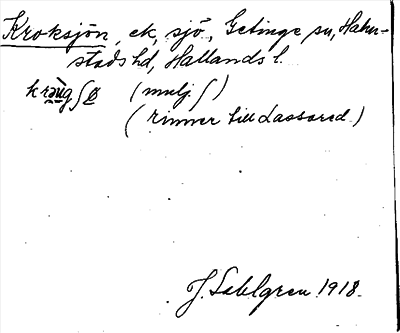 Kroksjön, ek, sjö, Getinge sn, Halm-
stads hd, Hallands l.
(mulj. ʃ)
(rinner till Lassared.)
J. Sahlgren 1918.